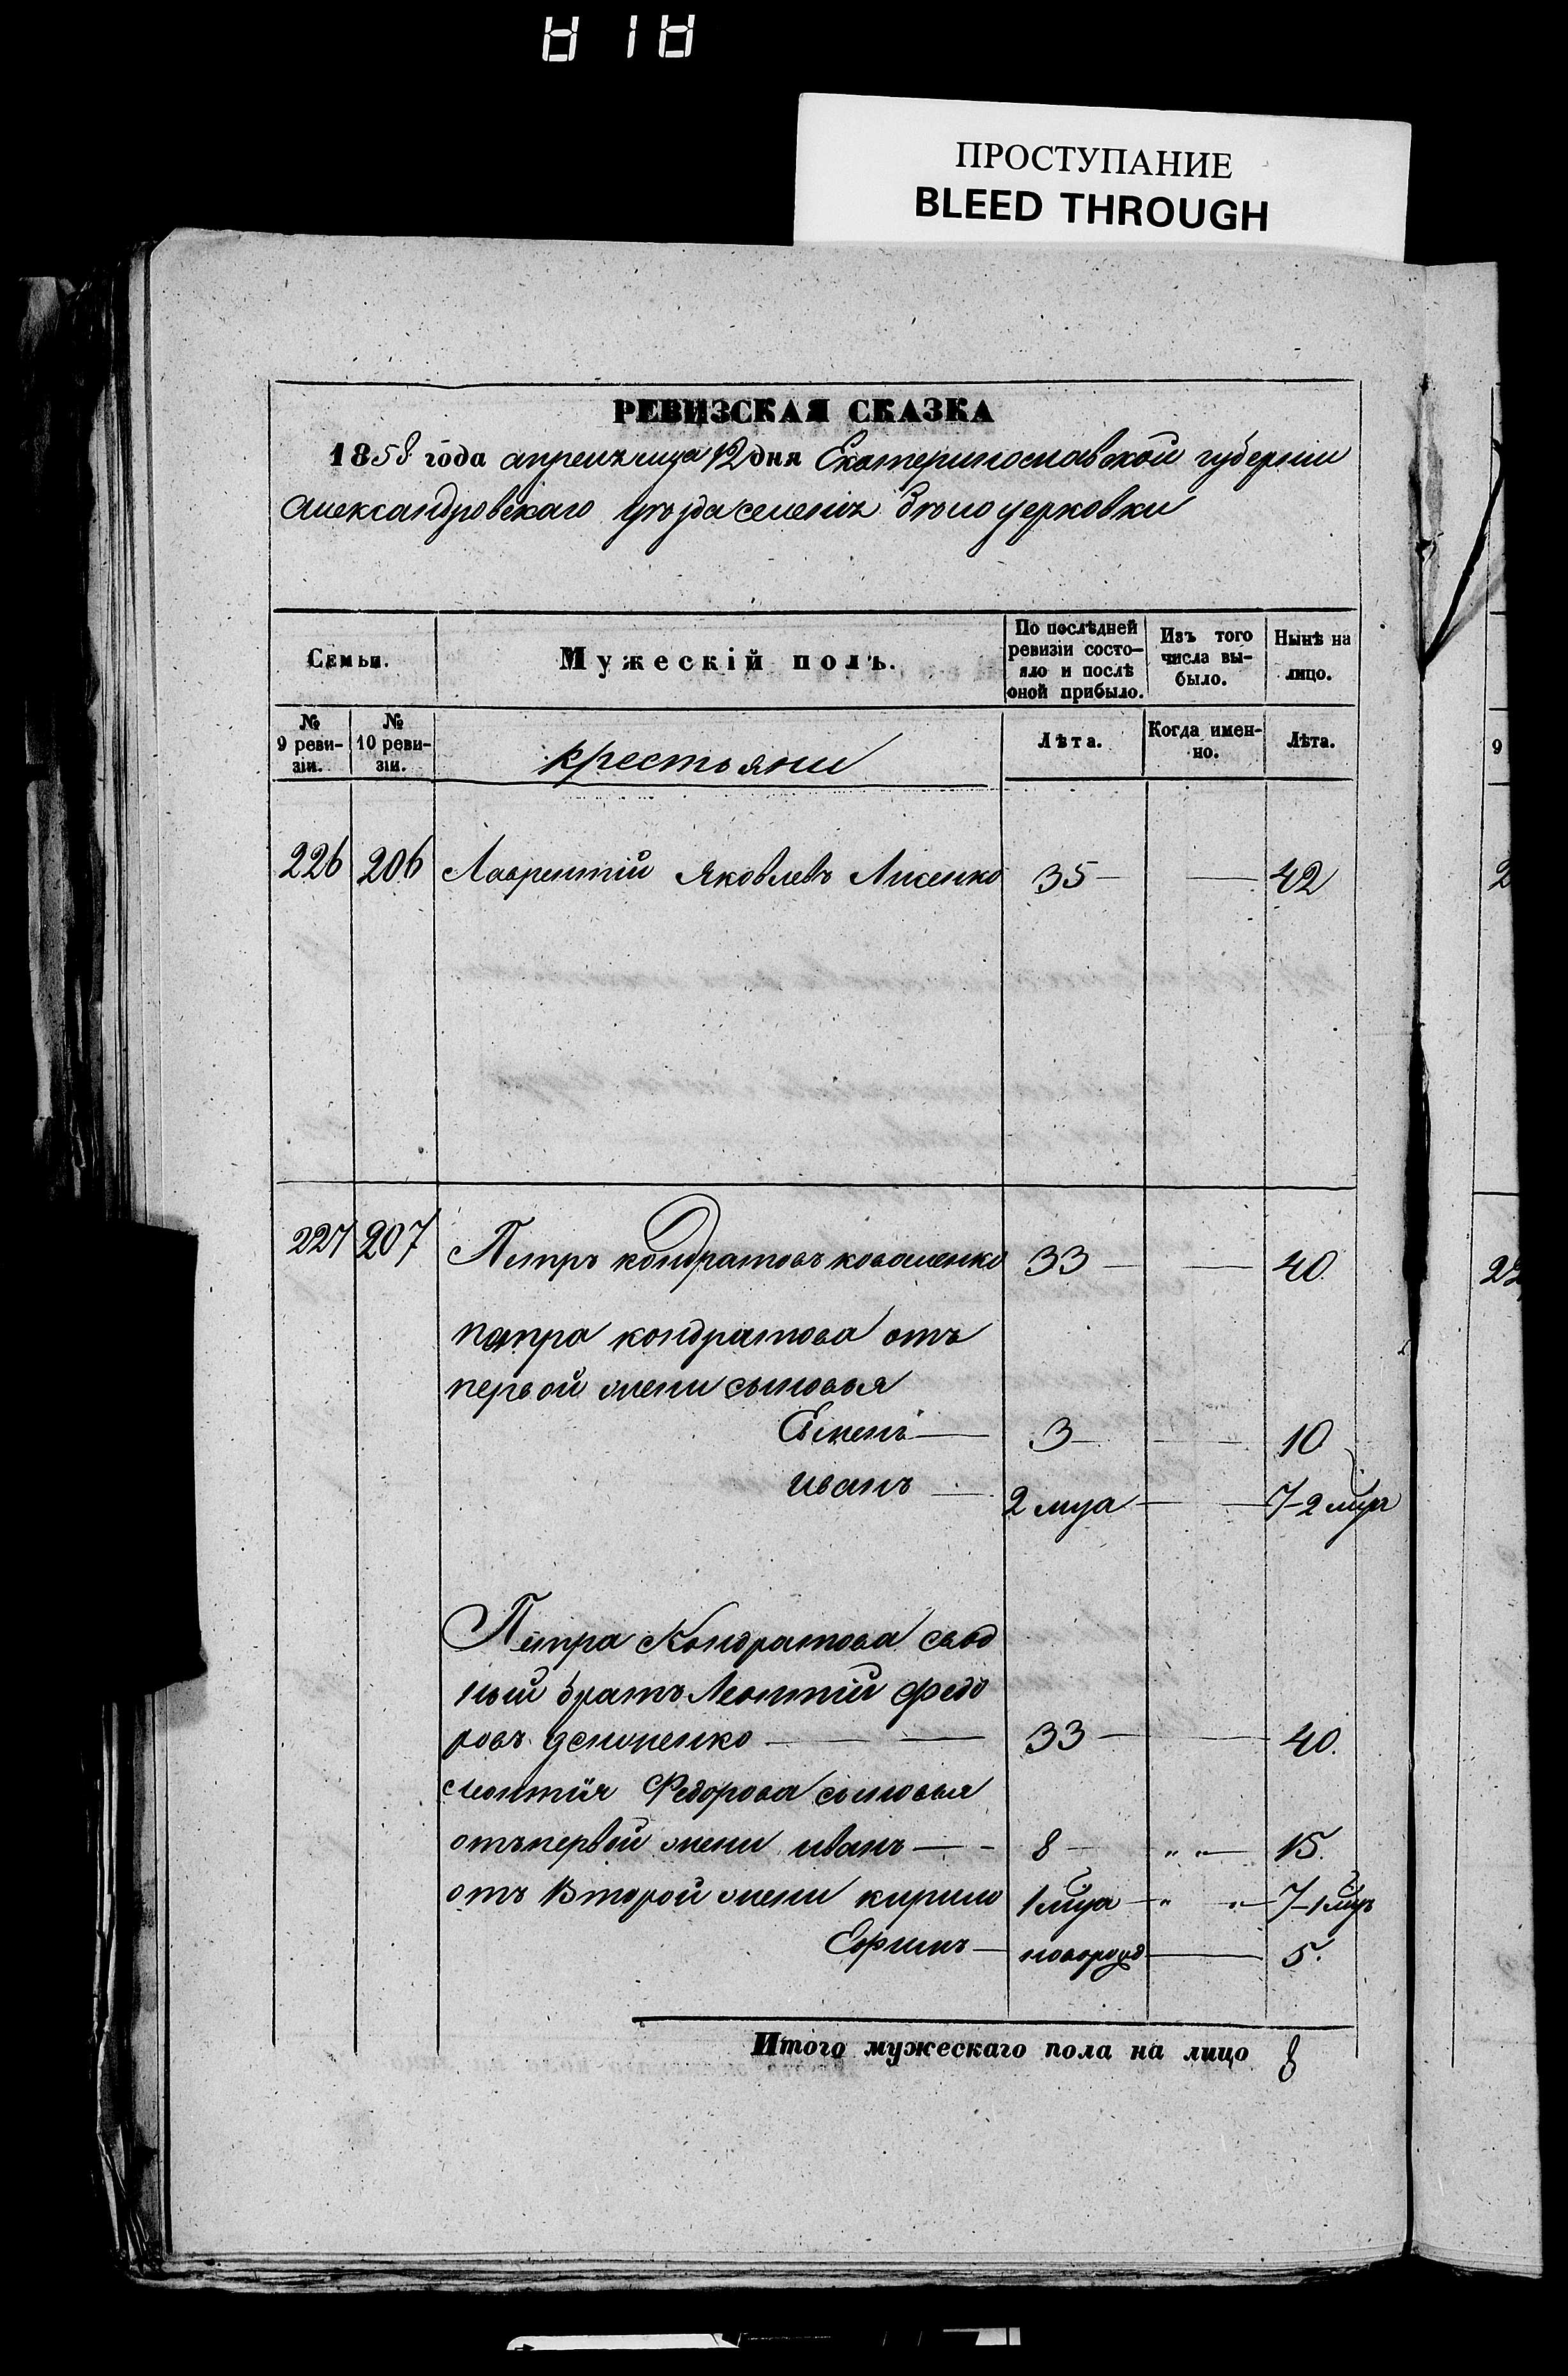 818
ПРОСТУПАНИЕ
BLEED THROUGH
РЕВИЗСКАЯ СКАЗКА
1858 года апрелъ мца 12 дня Екатеринославской губернии
Александровскаго уѣзда селенія Бѣлоцерковки
Семьи.
Мужескій полъ.
По послѣдней ревизіи состо-
яло и послѣ
оной прибыло.
Изъ того
числа вы-
было.
Нынѣ на
лицо.
№
9 реви-
зіи.
№
10 реви-
зіи.
крестьяни
Лѣта.
Когда имен-
но.
Лѣта.
226 206 Лаврентій Яковлевъ Лисенко 35 — — 42
227 207 Петръ кондратовъ коваленко 33 — — 40
петра кондратова отъ
первой жени сыновья
Семенъ — 3 — — 10
иванъ — 2 мца — — 7-2 мцъ
Петра Кондратова свод
ный братъ Леонтій Федо
ровъ 33 — — 40.
Леонтія Федорова сыновья
отъ первой жени иванъ — 8 — „ „ — 15.
отъ Второй жени кирило 1 мца — „ „ — 7-1 мцъ
Ефимъ — новорожд — 5.
Итого мужескаго пола на лицо 8